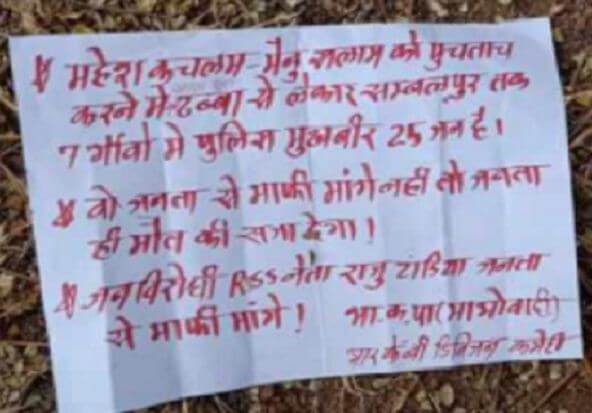 * महेश कचलाम-मैनु सलाम को पुचताच
करने मे-ढब्बा से लेकार सम्बलपुर तक
7 गाँवो मे पुलिस मुखबीर 25 जन है।
* वो जनता से माफी मांगे नही तो जनता
ही मौत की सजा देगा!
* जनविरोधी RSS नेता राजु टांडिया जनता
से माफी मांगे! भा.क.पा (माओवादी)
आर के बी डिविजन कमेटी